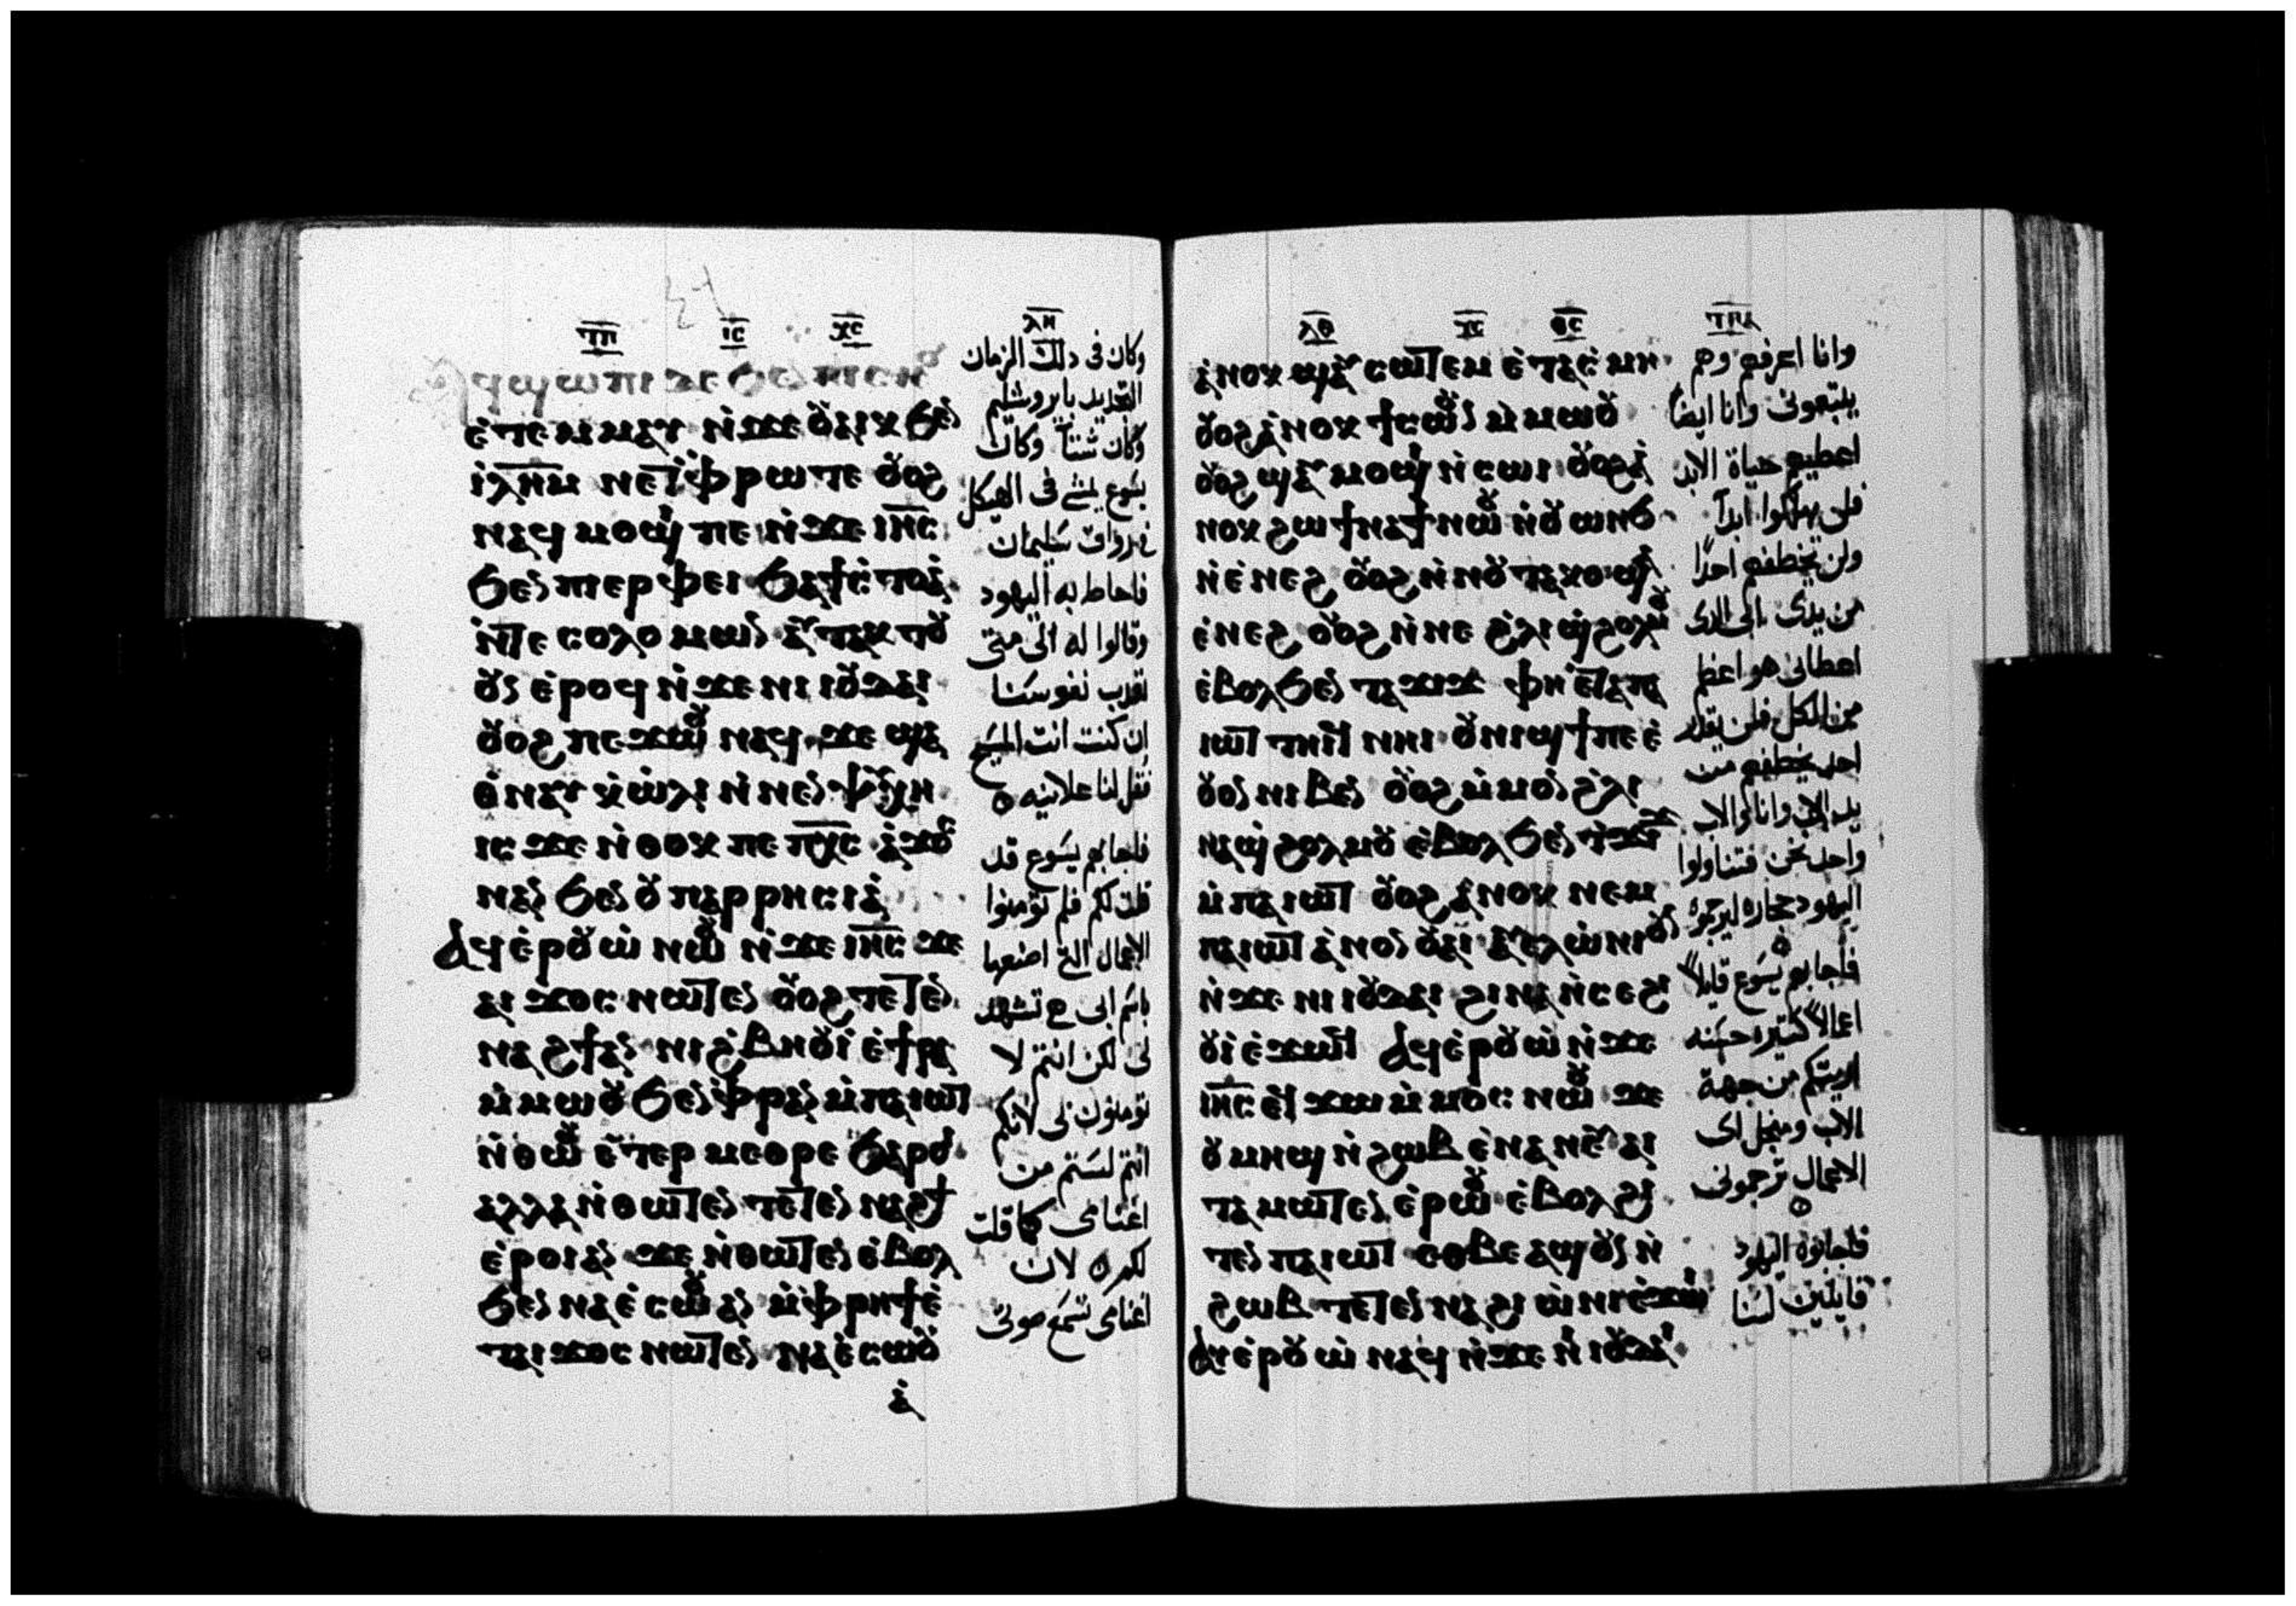 ⲓ̅ⲥ̅ ⲭ̅ⲥ̅ ⲗ̅ⲏ̅
ⲉⲧⲉⲙⲙⲁⲩ ⲛ̀ϫⲉ ⲟⲩⲁⲓⲕ ϧⲉⲛ
ⲓ̀ⲗ̅ⲏ̅ⲙ̅ ⲛⲉ ⲧ̀ⲫⲣⲱ ⲧⲉ ⲟⲩⲟϩ
ⲛⲁϥⲙⲟϣⲓ ⲡⲉ ⲛ̀ϫⲉ ⲓⲏ̅ⲥ̅
ϧⲉⲛ ⲡⲓⲉⲣⲫⲉⲓ ϧⲁ ϯⲥ̀ⲧⲟⲁ̀
ⲛ̀ⲧⲉ ⲥⲟⲗⲟⲙⲱⲛ ⲁⲩⲧⲁⲕⲧⲟ
ⲟⲩⲛ ⲉ̀ⲣⲟϥ ⲛ̀ϫⲉ ⲛⲓⲓⲟⲩⲇⲁⲓ
ⲟⲩⲟϩ ⲡⲉϫⲱⲟⲩ ⲛⲁϥ ϫⲉ ϣⲁ
ⲑ̀ⲛⲁⲩ ⲕ̀ⲱ̀ⲗⲓ ⲛ̀ⲛⲉⲛⲯⲩⲭⲏ
ⲓⲥϫⲉ ⲛ̀ⲑⲟⲕ ⲡⲉ ⲡⲭ̅ⲥ̅ ⲁ̀ϫⲟⲥ
ⲛⲁⲛ ϧⲉⲛ ⲟⲩⲡⲁⲣⲣⲏⲥⲓⲁ̀
Ⲁϥⲉ̀ⲣⲟⲩⲱ̀ ⲛⲱⲟⲩ ⲛ̀ϫⲉ ⲓⲏ̅ⲥ̅ ϫⲉ
ⲁⲓϫⲟⲥ ⲛⲱⲧⲉⲛ ⲟⲩⲟϩ ⲧⲉⲧⲉⲛ
ⲛⲁϩϯ ⲁⲛ ⲛⲓϩ̀ⲃⲏⲟⲩⲓ̀ ⲉ̀ϯⲣⲁ
ⲙ̀ⲙⲱⲟⲩ ϧⲉⲛ ⲫ̀ⲣⲁⲛ ⲙ̀ⲡⲁⲓⲱⲧ
ⲛ̀ⲑⲱⲟⲩ ⲉⲧⲉⲣⲙⲉⲑⲣⲉ ϧⲁⲣⲟⲓ
ⲁⲗⲗⲁ ⲛ̀ⲑⲱⲧⲉⲛ ⲧⲉⲧⲉⲛⲛⲁϩϯ
ⲉ̀ⲣⲟⲓ ⲁⲛ ϫⲉ ⲛ̀ⲑⲱⲧⲉⲛ ⲉ̀ⲃⲟⲗ
ϧⲉⲛ ⲛⲁⲉ̀ⲥⲱⲟⲩ ⲁⲛ ⲙ̀ⲫ̀ⲣⲏϯ ⲉ̀
ⲧⲁⲓϫⲟⲥ ⲛⲱⲧⲉⲛ ⲛⲁⲉ̀ⲥⲱⲟⲩ
ⲁ̀
وكان في دلك الزمان
التجديد بايروشليم
وكان شتاً وكان
يسوع يمشي في الهيكل
في رواق سليمان
فاحاط به اليهود
وقالوا له الى متى
تعدب نفوسنا
ان كنت انت المسيح
فقل لنا علانيه
فاجابهم يسوع قد
قلت لكم فلم تومنوا
الاعمال التي اصنعها
باسم ابي هي تشهد
لي لكن انتم لا
تومنون لي لانكم
انتم لستم من
اغنامى كما قلت
لكم لان
اغنامى تسمع صوتى
ⲗ̅ⲑ̅
ⲁ̀ⲛⲟⲕ ϣⲁⲩⲥⲱⲧⲉⲙ ⲉ̀ⲧⲁⲥ̀ⲙⲏ
ⲟⲩⲟϩ ⲁ̀ⲛⲟⲕ ϯⲥⲱⲟⲩⲛ ⲙ̀ⲙⲱⲟⲩ
ⲟⲩⲟϩ ϣⲁⲩⲙⲟϣⲓ ⲛ̀ⲥⲱⲓ ⲟⲩⲟϩ ⲁ̀
ⲛⲟⲕ ϩⲱ ϯⲛⲁϯ ⲛⲱⲟⲩ ⲛ̀ⲟⲩⲱⲛϧ
ⲛ̀ⲉ̀ⲛⲉϩ ⲟⲩⲟϩ ⲛ̀ⲛⲟⲩⲧⲁⲕⲟ ϣⲁ
ⲉ̀ⲛⲉϩ ⲟⲩⲟϩ ⲛ̀ⲛⲉ ϩ̀ⲗⲓ ϣ̀ϩⲟⲗⲙⲟⲩ
ⲉ̀ⲃⲟⲗ ϧⲉⲛ ⲧⲁϫⲓϫ ⲫⲏ ⲉ̀ⲧⲁ ⲡⲁ
ⲓⲱⲧ ⲧⲏⲓⲧ ⲛⲏⲓ ⲟⲩⲛⲓϣϯ ⲡⲉ ⲉ̀
ⲟⲩⲟⲛ ⲛⲓⲃⲉⲛ ⲟⲩⲟϩ ⲙ̀ⲙⲟⲛ ϩ̀ⲗⲓ
ⲛⲁϣ̀ϩⲟⲗⲙⲟⲩ ⲉ̀ⲃⲟⲗ ϧⲉⲛ ⲧ̀ϫⲓϫ
ⲙ̀ⲡⲁⲓⲱⲧ ⲟⲩⲟϩ ⲁ̀ⲛⲟⲕ ⲛⲉⲙ
ⲡⲁⲓⲱⲧ ⲁ̀ⲛⲟⲛ ⲟⲩⲁⲓ ⲁⲩⲉⲗⲱ̀ⲛⲓ ⲟⲩⲛ
ⲛ̀ϫⲉ ⲛⲓⲓⲟⲩⲇⲁⲓ ϩⲓⲛⲁ ⲛ̀ⲥⲉϩⲓ
ⲟⲩⲓ̀ ⲉ̀ϫⲱϥ Ⲁϥⲉ̀ⲣⲟⲩⲱ̀ ⲛ̀ϫⲉ
ⲓⲏ̅ⲥ̅ ⲉϥϫⲱ ⲙ̀ⲙⲟⲥ ⲛⲱⲟⲩ ϫⲉ
ⲟⲩⲙⲏϣ ⲛ̀ϩⲱⲃ ⲉ̀ⲛⲁⲛⲉⲩ ⲁⲓ
ⲧⲁⲙⲱⲧⲉⲛ ⲉ̀ⲣⲱⲟⲩ ⲉ̀ⲃⲟⲗ ϩⲓ
ⲧⲉⲛ ⲡⲁⲓⲱⲧ ⲉⲑⲃⲉ ⲁϣ ⲟⲩⲛ ⲛ̀
ϩⲱⲃ ⲧⲉⲧⲉⲛⲛⲁϩⲓⲱ̀ⲛⲓ ⲉ̀ϫⲱⲓ
Ⲁⲩⲉ̀ⲣⲟⲩⲱ̀ ⲛⲁϥ ⲛ̀ϫⲉ ⲛⲓⲓⲟⲩⲇⲁⲓ
وانا اعرفهم وهم
يتبعونى وانا ايضاً
اعطيهم حياة الابد
فلن يهلكوا ابداً
ولن يخطفهم احداً
من يدى ابى الدى
اعطانى هو اعظم
من الكل فلن يقدر
احد يخطفهم من
يد الاب وانا والاب
واحد نحن فتناولوا
اليهود حجاره ليرجموه
فاجابهم يسوع قايلاً
اعمالاً كثيره حسنه
اريتكم من جهة
الاب ومنجل اى
الاعمال ترجمونى
فاجابوه اليهود
قايلين لسنا